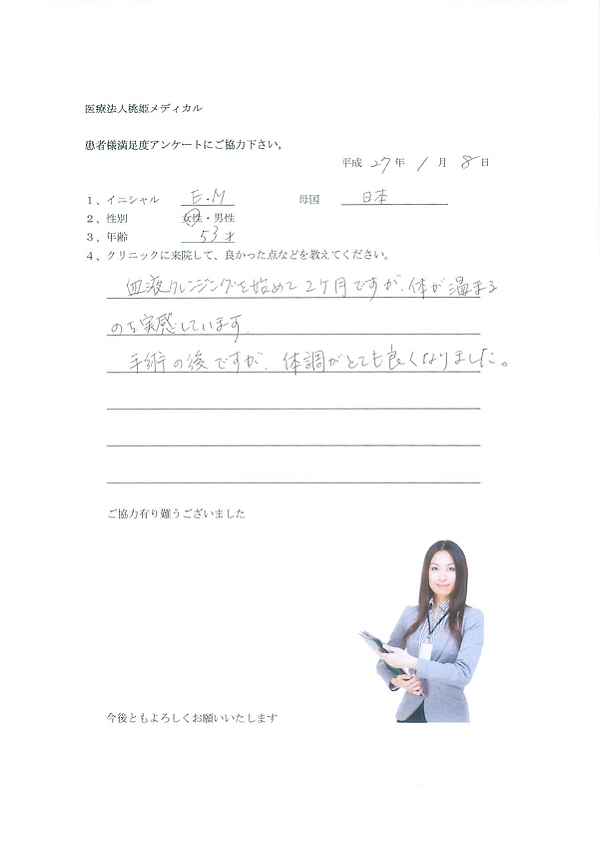 医療法人桃姫メディカル
患者様満足度アンケートにご協力下さい。
平成 27 年 1 月 8 日
1、イニシャル E.M 母国 日本
2、性別 女性・男性
3、年齢 53才
4、クリニックに来院して、良かった点などを教えてください。
血液クレンジングを始めて2ケ月ですが、体が温まる
のを実感しています。
手術の後ですが、体調がとても良くなりました。
ご協力有り難うございました
今後ともよろしくお願いいたします